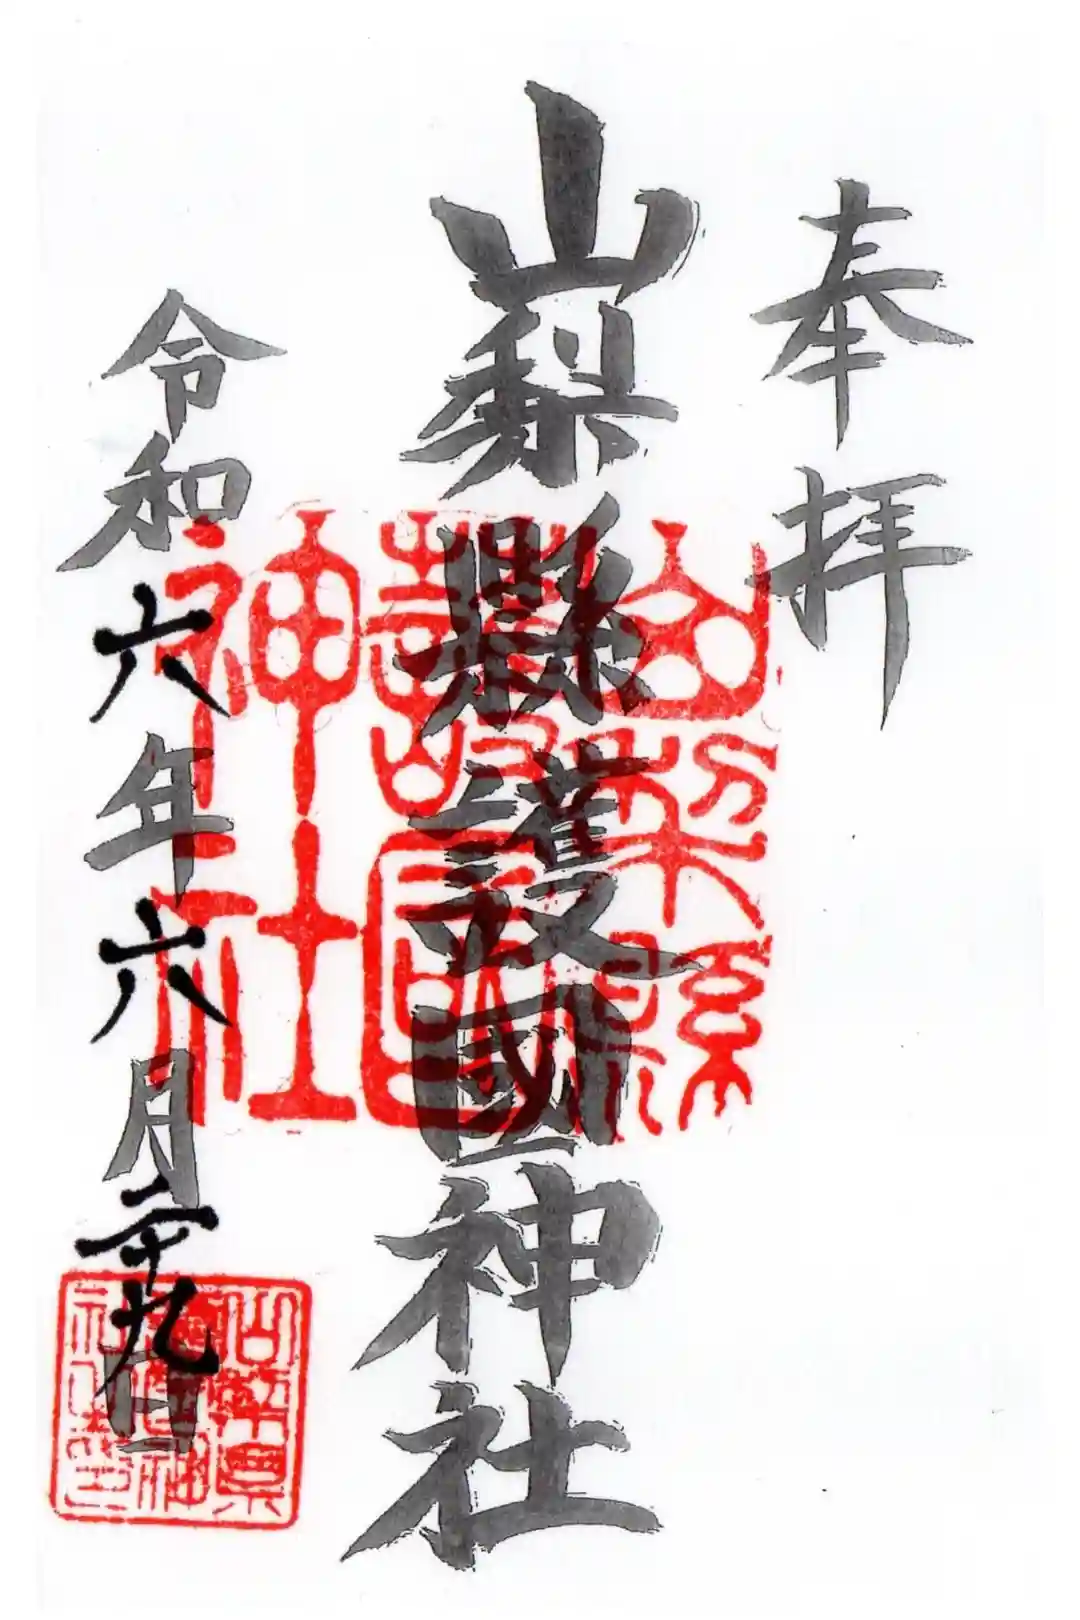 奉拝
山梨縣護國神社
山梨縣護國神社
令和六年六月二十九日